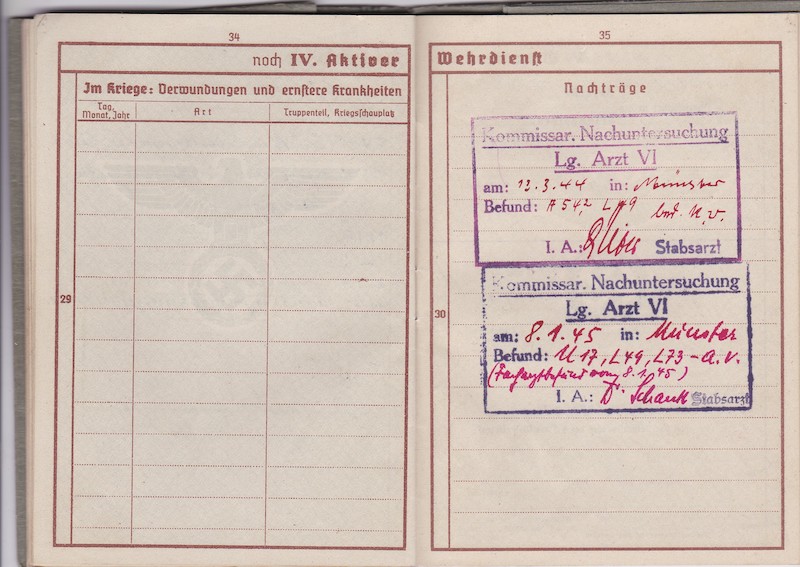 34
noch IV. Aktiver
Im Kriege: Verwundungen und ernstere Krankheiten
Tag, Monat, Jahr
Art
Truppenteil, Kriegsschauplatz
29
35
Wehrdienst
Nachträge
30
Kommissar. Nachuntersuchung
Lg. Arzt VI
am: 13.3.44 in: Münster
Befund: A 54,2 L 49 bed. K.v.
I. A.: Stabsarzt
Kommissar. Nachuntersuchung
Lg. Arzt VI
am: 8.1.45 in: Münster
Befund: U 17, L 49, L 73 - a.v.
(Facharztbefund vom 8.1.45)
I. A.: Dr. Schank Stabsarzt